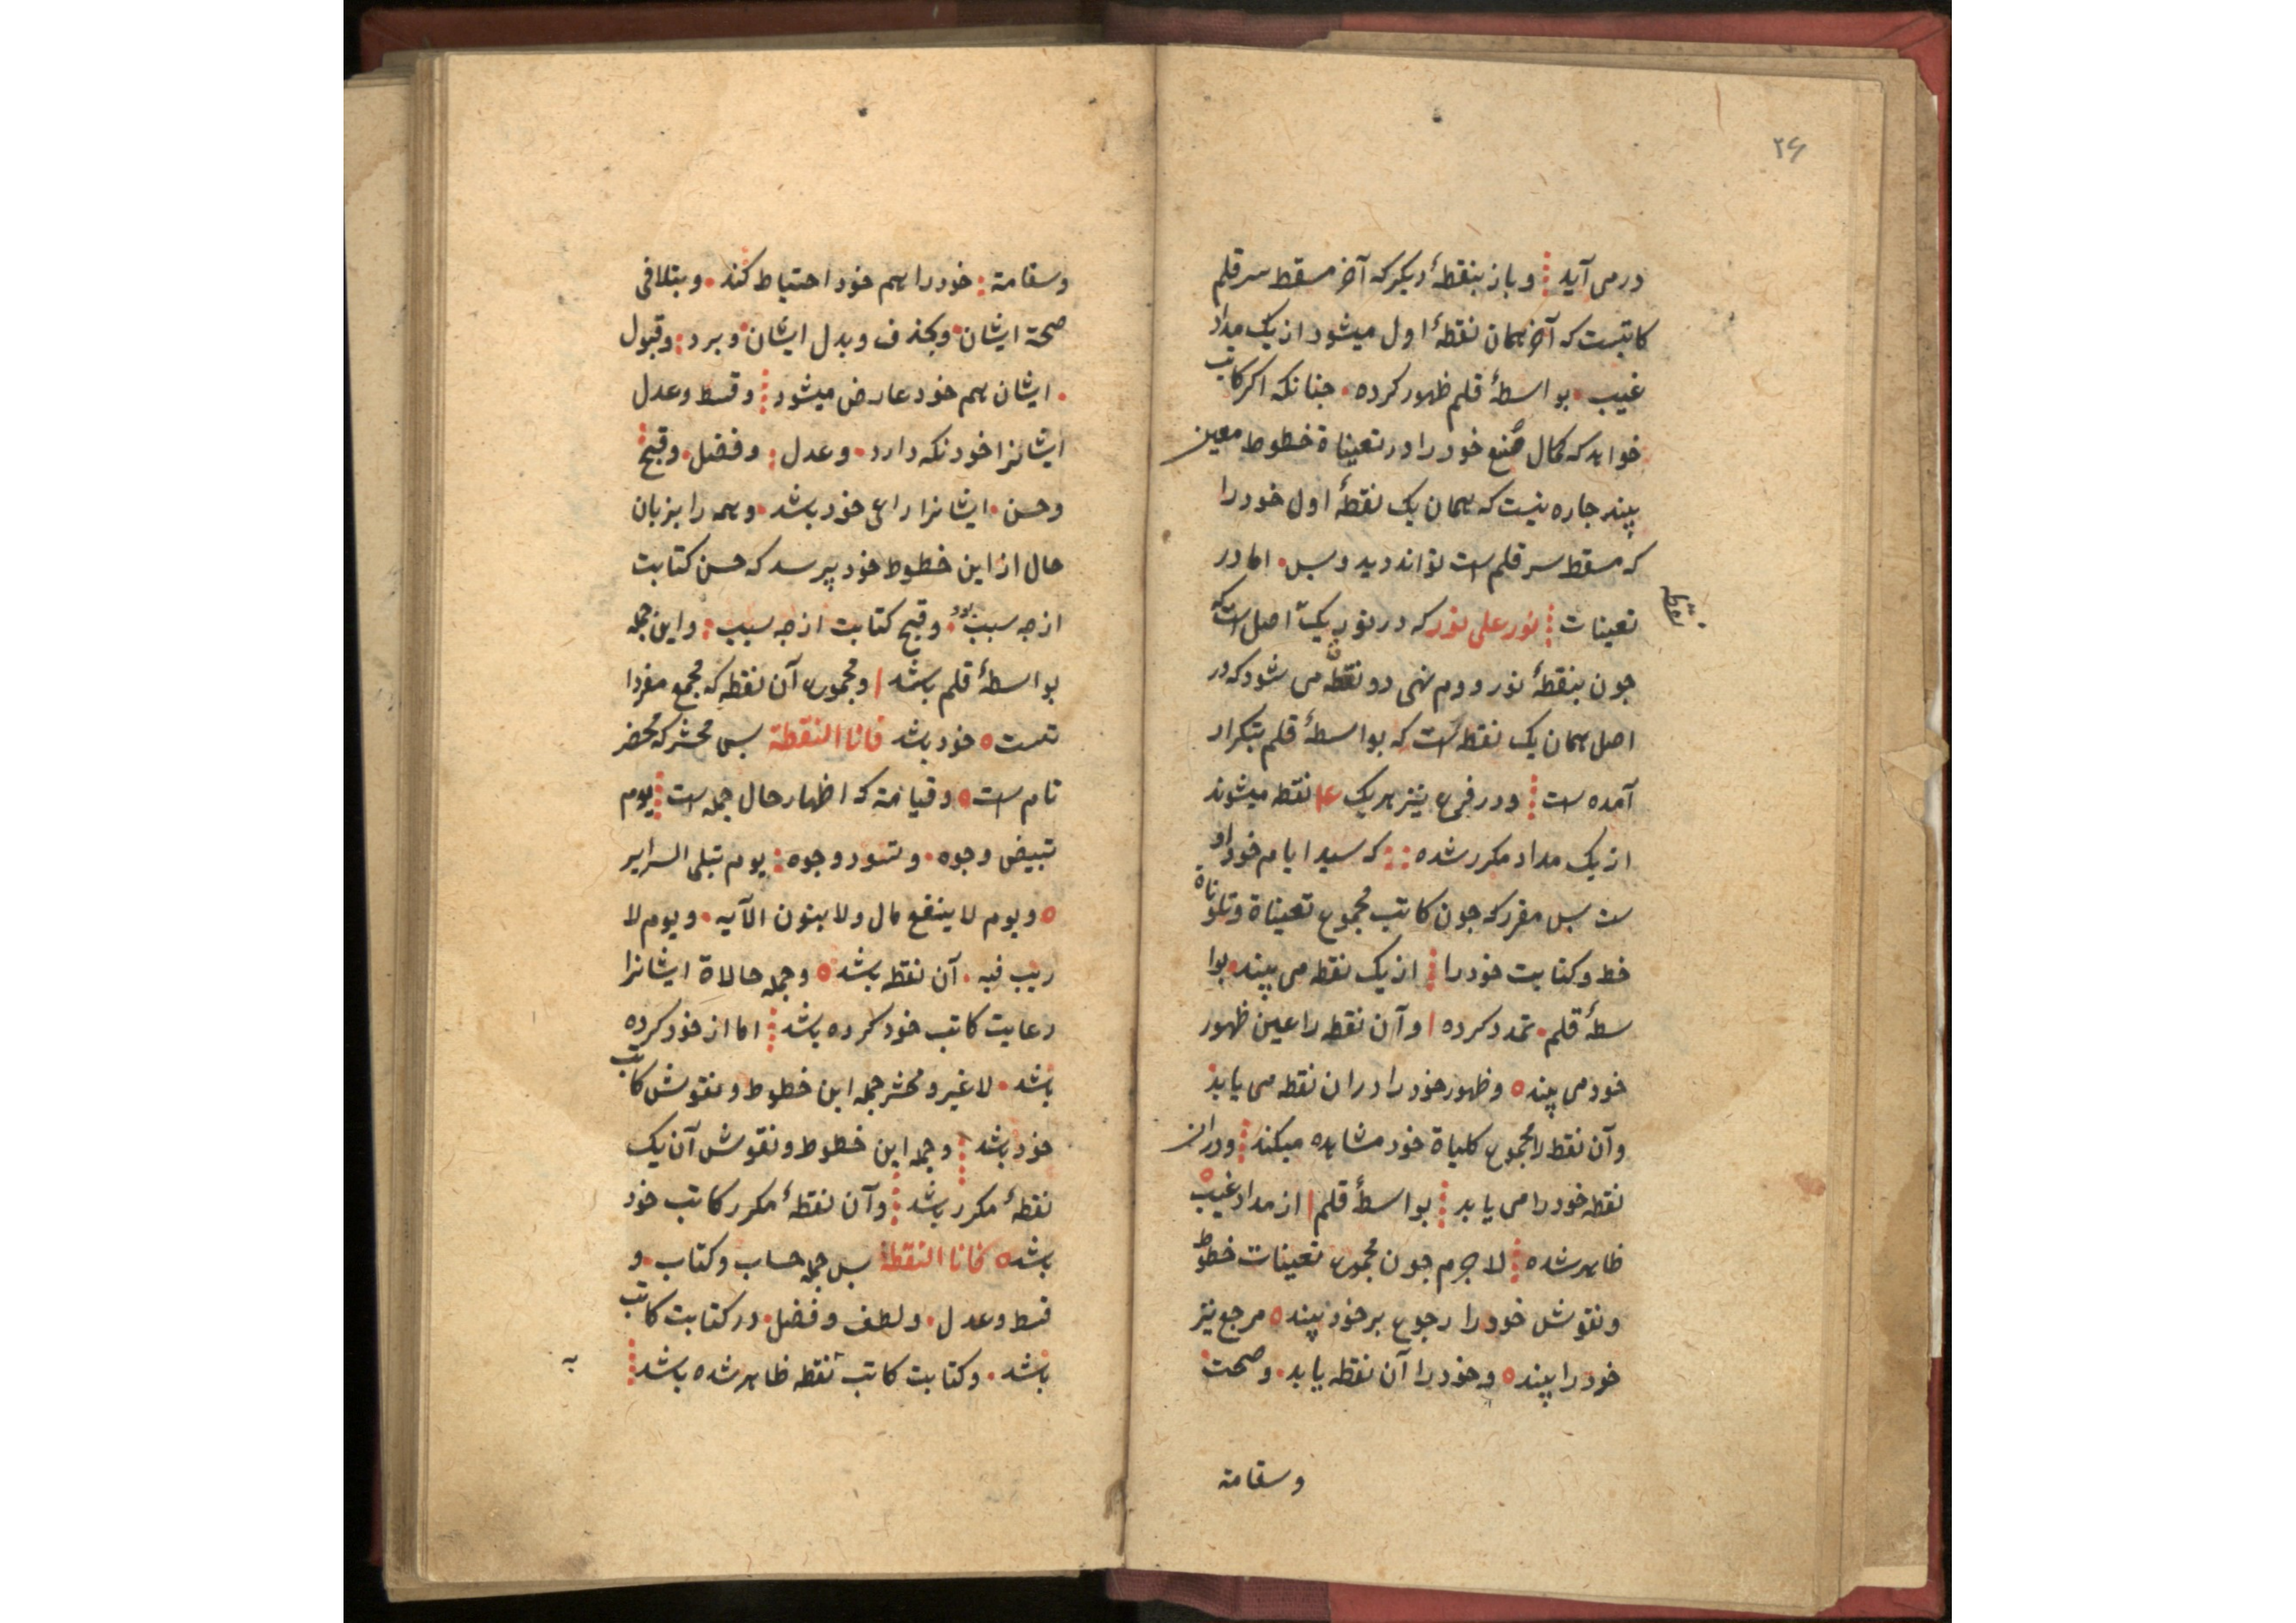 ۲۶
درمی آید وباز بنقطهٔ دیکر که آخر مسقط سرقلم
کاتبست که آخر همان نقطهٔ اول میشود از یک مداد
غیب بواسطهٔ قلم ظهور کرده جنانکه اکر کاتب
خواهد که کمال صُنع خود را در تعیناة خطوط معین
بیند جاره نیست که همان یک نقطهٔ اول خود را
که مسقط سر قلم است تواند دید وبس اما در
تعینات نور علی نور که در نون یک اصل است که
نقطه
جون بنقطهٔ نور دوم نهی دو نقطه می شود که در
اصل همان یک نقطه است که بواسطهٔ قلم بتکرار
آمده است ودر فرع نیز هریک نقطه میشوند
از یک مداد مکرر شده که سید ایام خود او
ست بس مقرر که جون کاتب مجموع تعیناة وتلوناة
خط وکتابت خود را از یک نقطه می بیند بوا
سطهٔ قلم تمدد کرده وآن نقطه را عین ظهور
خود می بیند وظهور خود را دران نقطه می یابد
وآن نقطه را مجموع کلیاة خود مشاهده میکند ودران
نقطه خود را می یابد بواسطهٔ قلم از مداد غیب
ظاهر شده لاجرم جون مجموع تعینات خطوط
ونقوش خود را رجوع بر خود بیند مرجع نیز
خود را بیند وخود را آن نقطه یابد وصحت
وسقامة
وسقامة خود را هم خود احتیاط کند وبتلافی
صحة ایشان وبحذف وبدل ایشان وبرد وقبول
ایشان هم خود عارض میشود وقسط وعدل
ایشانرا خود نکه دارد وعدل وفضل وقبح
وحسن ایشانرا راعی خود باشد وهمه را بزبان
حال از این خطوط خود پرسد که حسن کتابت
ازجه سبب بود وقبح کتابت از جه سبب واین جمله
بواسطهٔ قلم باشد ومجموع آن نقطه که مجمع مفردا
تست خود باشد فانا النقطة بس محشر که محضر
تام است وقیامة که اظهار حال جمله است یوم
تبیض وجوه وتسود وجوه یوم تبلی السرایر
ویوم لا ینفع مال ولا بنون الآیه ویوم لا
ریب فیه آن نقطه باشد وجمله حالاة ایشانرا
رعایت کاتب خود کرده باشد اما از خود کرده
باشد لا غیر ومحشر جمله این خطوط ونقوش کاتب
خود باشد وجمله این خطوط ونقوش آن یک
نقطهٔ مکرر باشد وآن نقطهٔ مکرر کاتب خود
باشد فانا النقطة بس جمله حساب وکتاب و
قسط وعدل ولطف وفضل در کتابت کاتب
باشد وکتابت کاتب نقطه ظاهر شده باشد
به